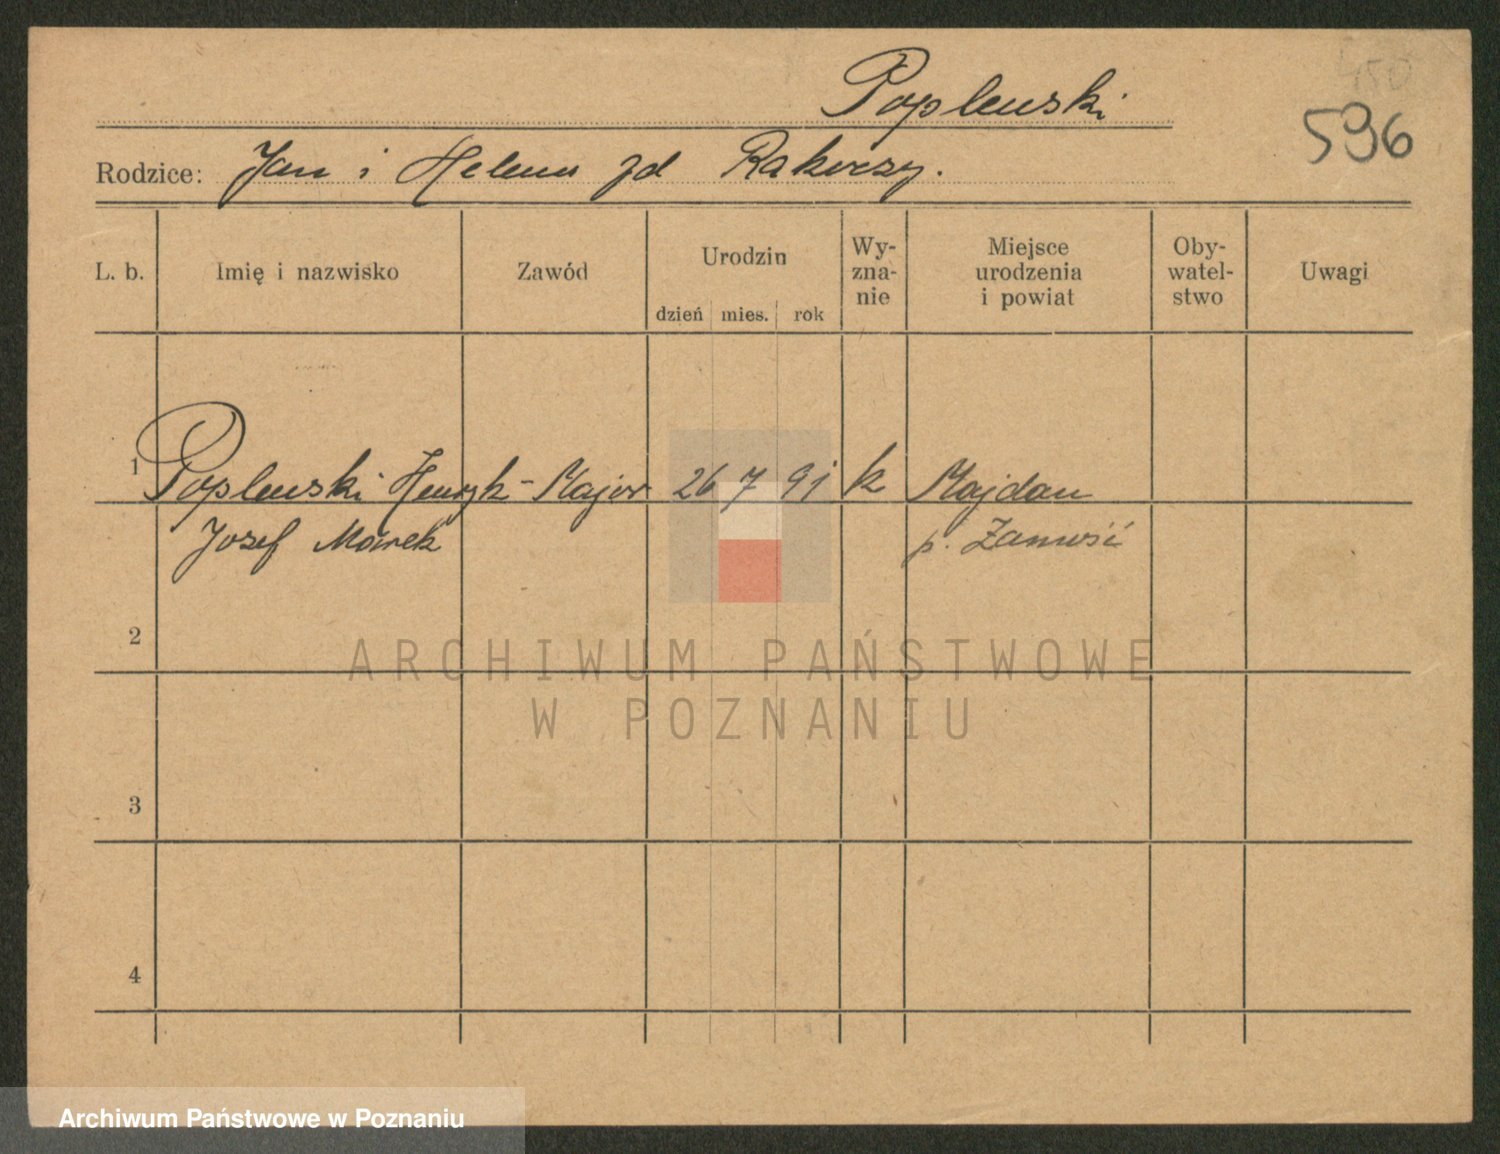 450
Poplewski
596
Rodzice: Jan i Helena zd Rakoczy.
L. b. Imię i nazwisko Zawód Urodzin Wy- Miejsce Oby- Uwagi
zna- urodzenia watel-
dzień mies. rok nie i powiat stwo
1 Poplewski Henryk - Major 26 7 91 k Majdan
Józef Marek p. Zamość
2
ARCHIWUM PAŃSTWOWE
W POZNANIU
3
4
Archiwum Państwowe w Poznaniu